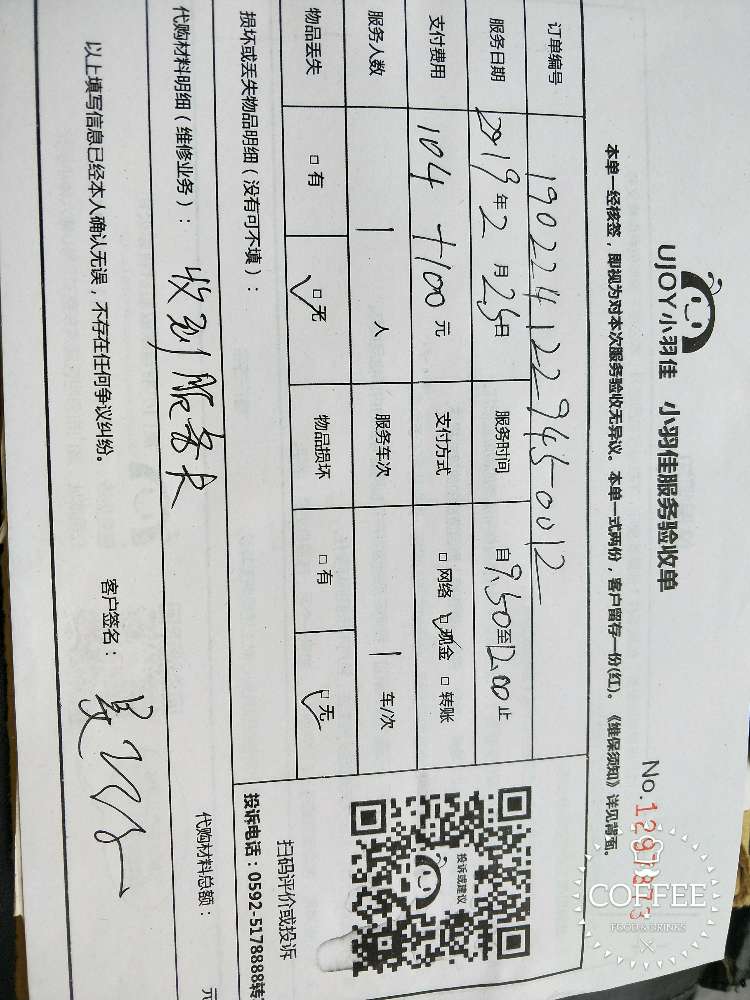 UJOY小羽佳 小羽佳服务验收单
No.1297873
本单一经核签，即视为对本次服务验收无异议。本单一式两份，客户留存一份(红)。《维保须知》详见背面。
订单编号 1902241229450012
服务日期 2019年2月25日 服务时间 自9.50至12.00止
支付费用 104+100元 支付方式 □网络 ☑现金 □转账
服务人数 1人 服务车次 1车/次
物品丢失 □有 ☑无 物品损坏 □有 ☑无
损坏或丢失物品明细（没有可不填）：
投诉或建议
扫码评价或投诉
投诉电话：0592-5178888转
代购材料明细（维修业务）： 收到服务卡
代购材料总额： 元
以上填写信息已经本人确认无误，不存在任何争议纠纷。 客户签名：
COFFEE
FOOD & DRINKS